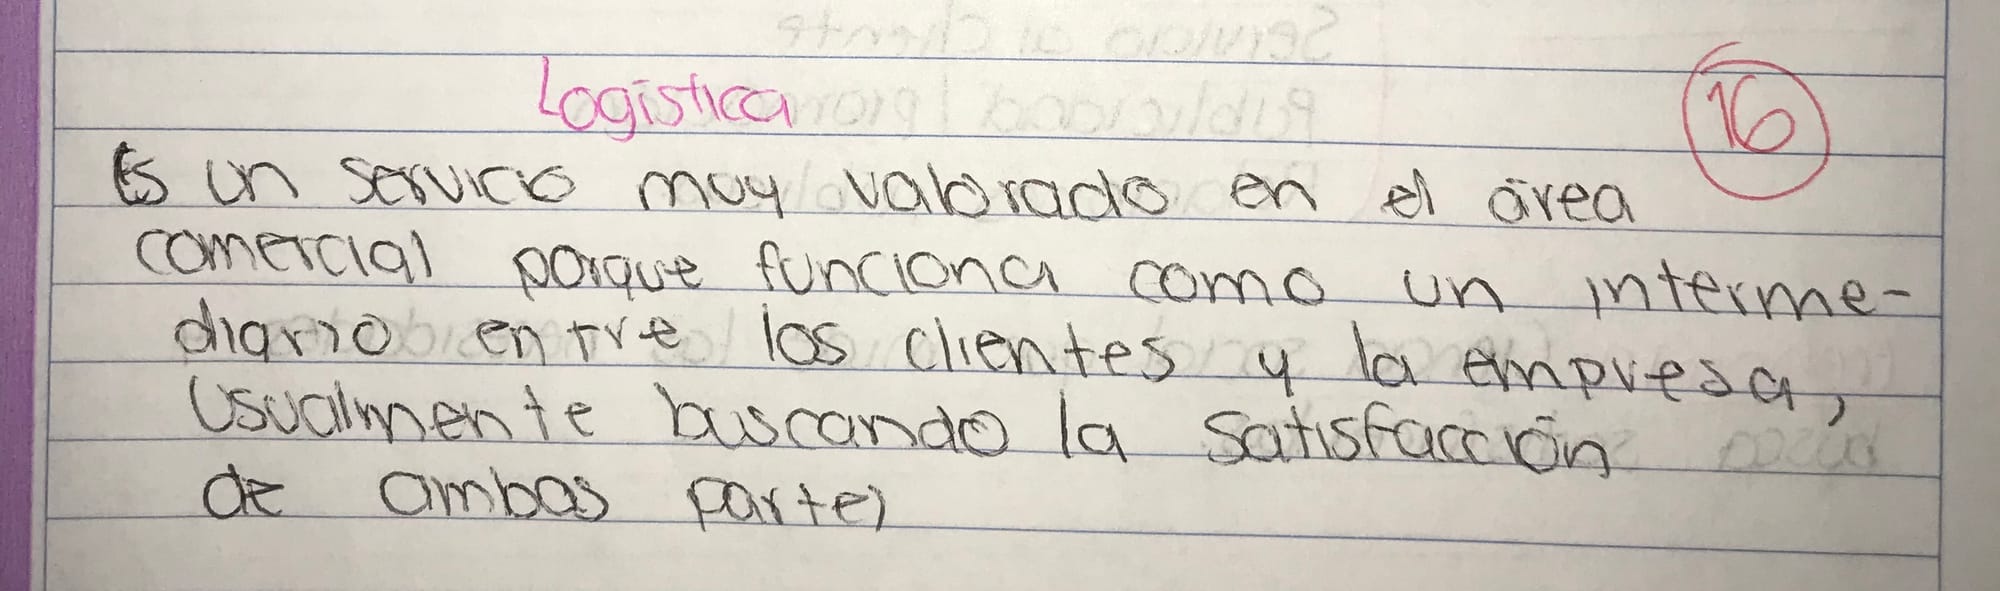 Logística
16
Es un servicio muy valorado en el área
comercial porque funciona como un interme-
diario entre los clientes y la empresa,
Usualmente buscando la satisfacción
de ambas partes